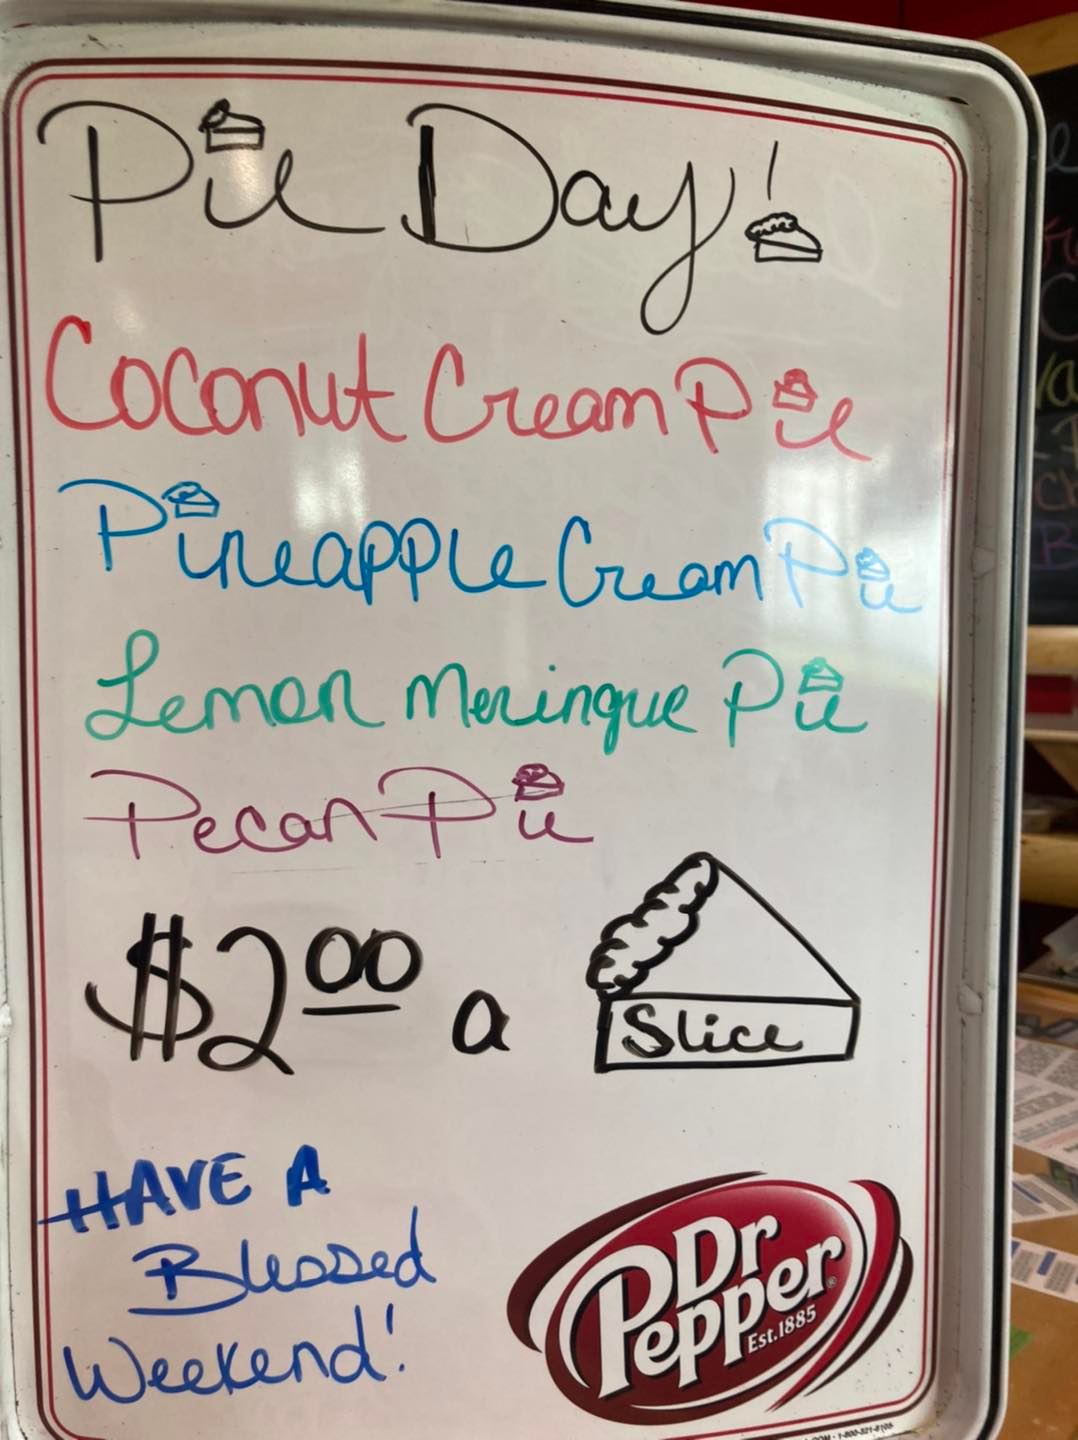 Pie Day!
Coconut Cream Pie
Pineapple Cream Pie
Lemon Meringue Pie
Pecan Pie
$2.00 a Slice
HAVE A
Blessed
Weekend!
Dr
Pepper®
Est.1885